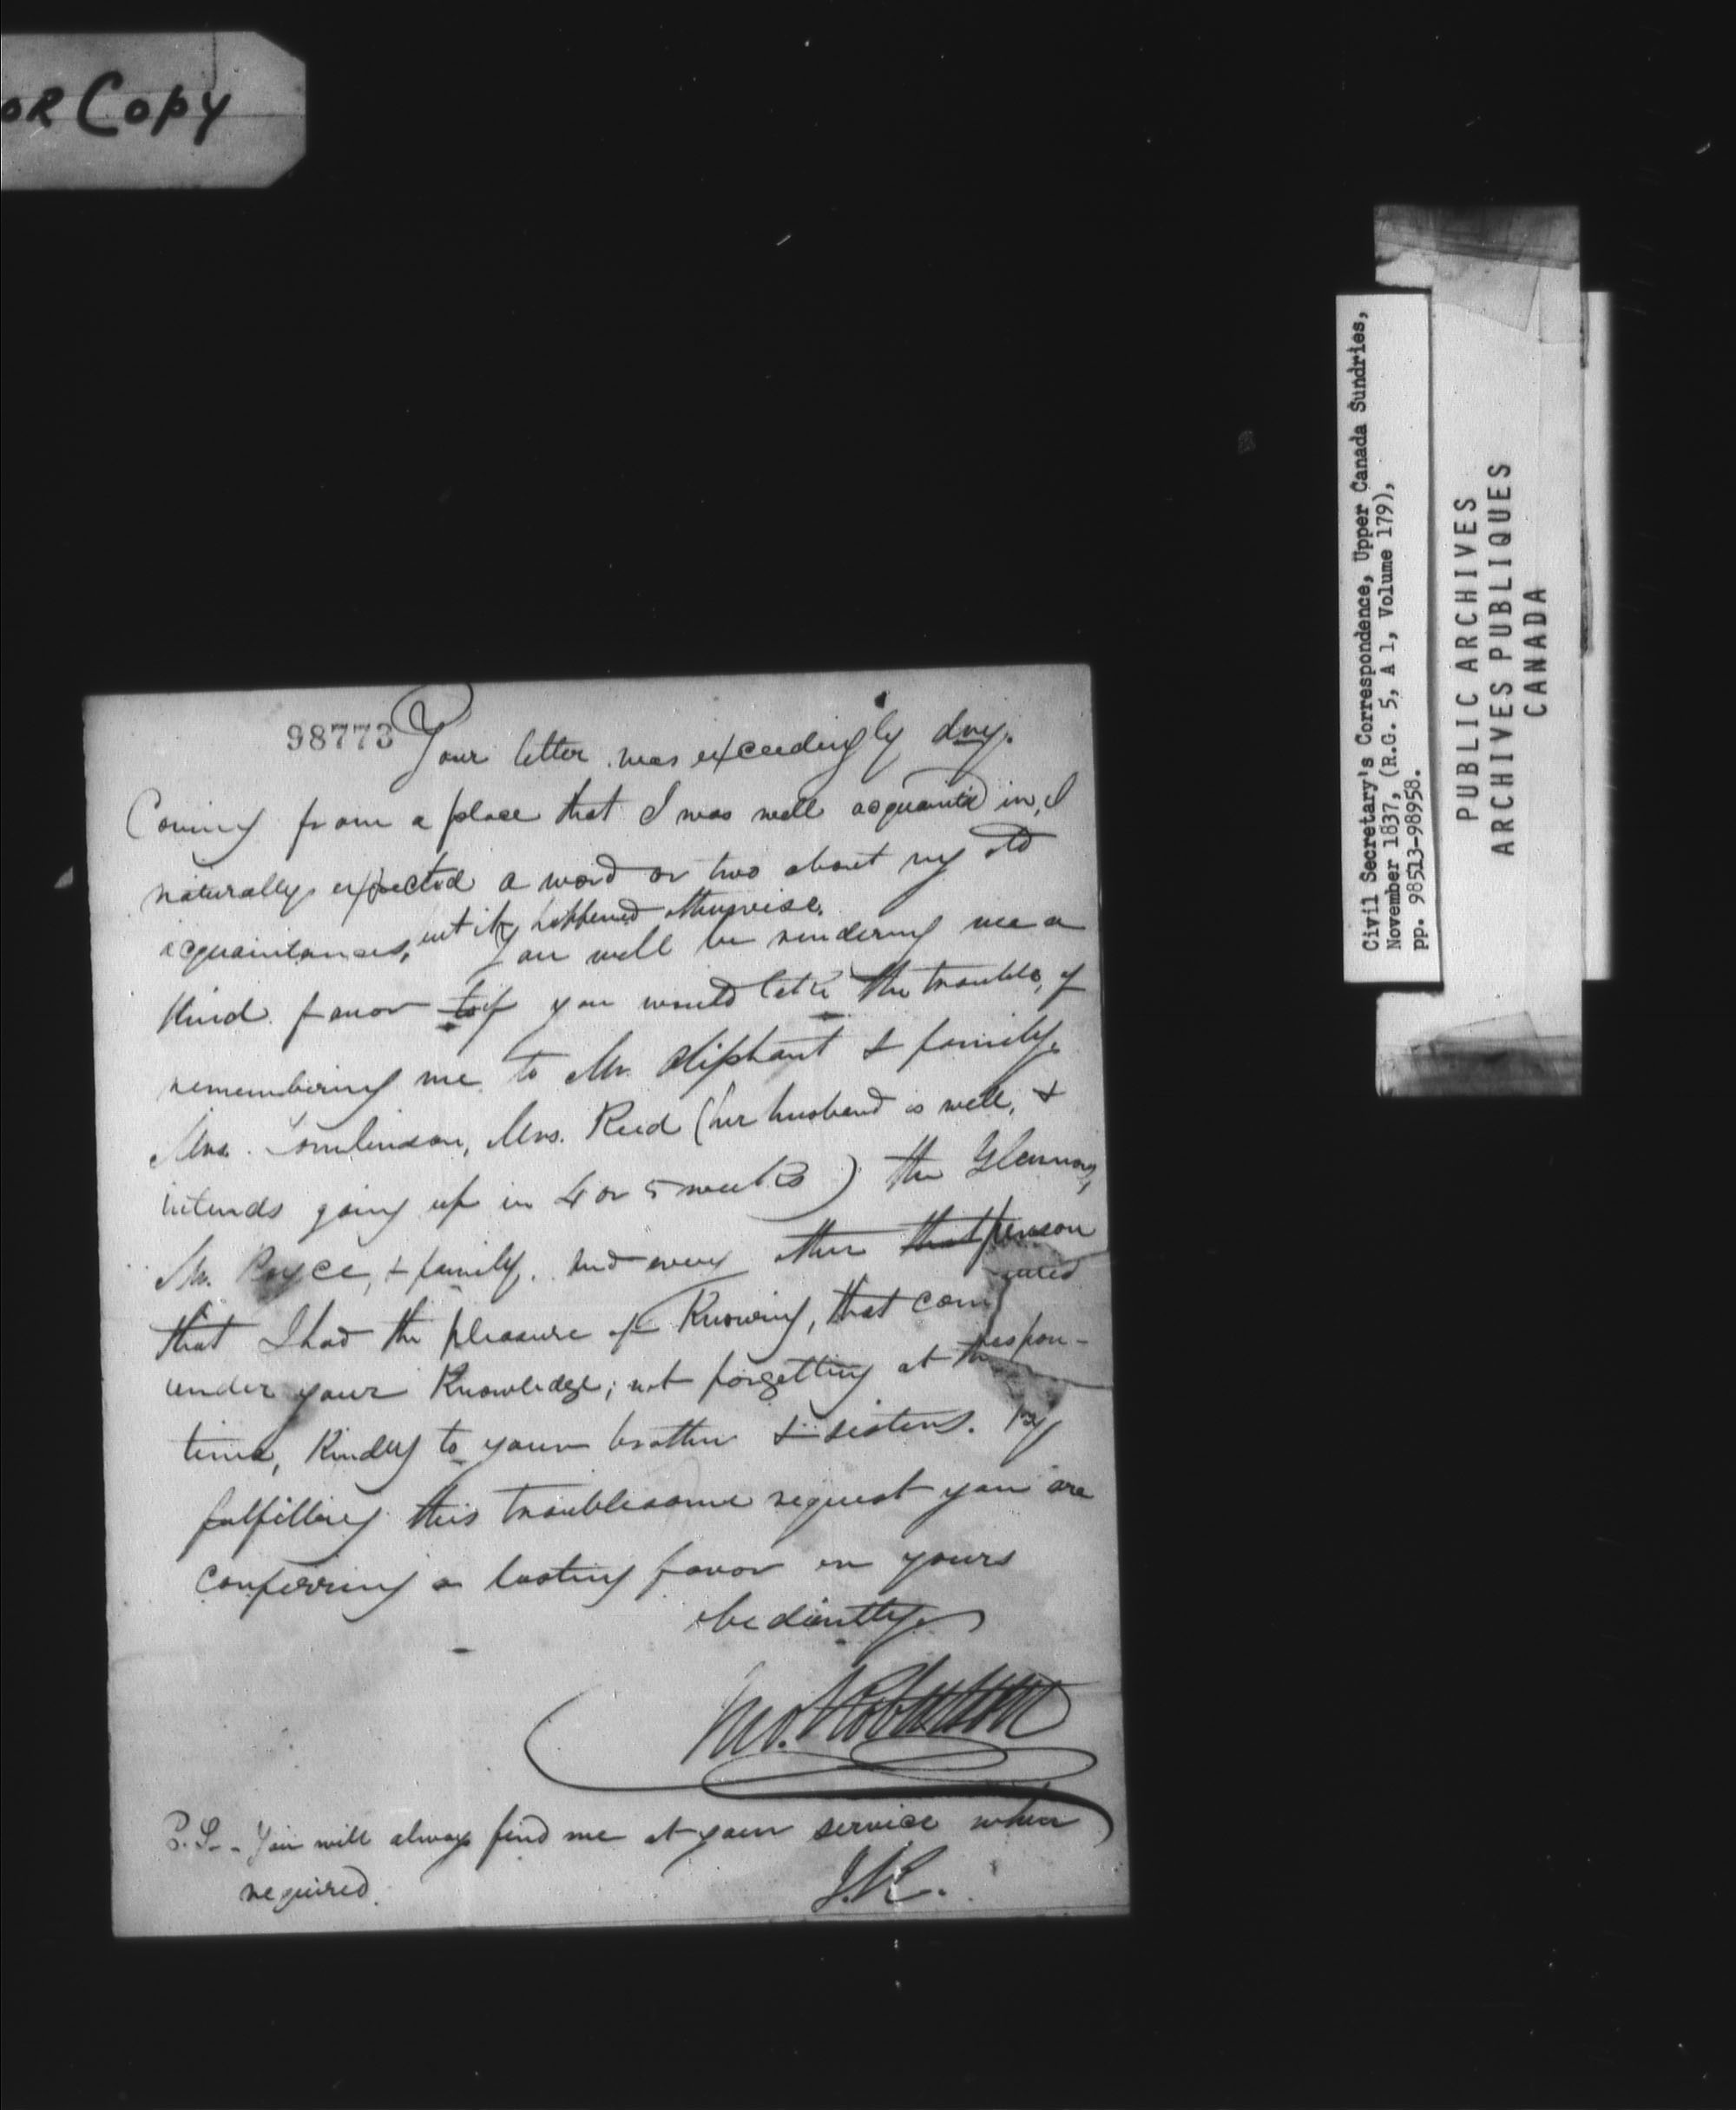 OR Copy
98773
Your letter was exceedingly dry.
Coming from a place that I was well acquainted in, I
naturally expected a word or two about my old
acquaintances, but it happened otherwise.
You will be rendering me a
kind favor to if you would take the trouble, of
remembering me to Mr. Oliphant & family.
Mrs. Tomlinson, Mrs. Reed (her husband is well, &
intends going up in 4 or 5 weeks) the
Mr. & family. And every other that person
that I had the pleasure of Knowing, that com
under your Knowledge; not forgetting at the
time, Kindly to your brother & sisters. By
fulfilling this troublesome request you are
conferring a lasting favor on yours
obediently
Jno. Robertson
P.S. - You will always find me at your service when
required.
J.R.
Civil Secretary's Correspondence, Upper Canada Sundries,
November 1837, (R.G. 5, A 1, Volume 179),
pp. 98513-98958.
PUBLIC ARCHIVES
ARCHIVES PUBLIQUES
CANADA